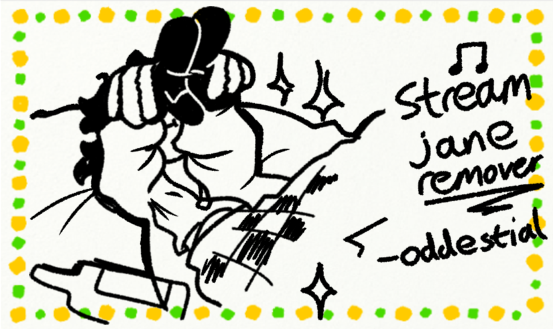 Stream
jane
remover
-oddestial